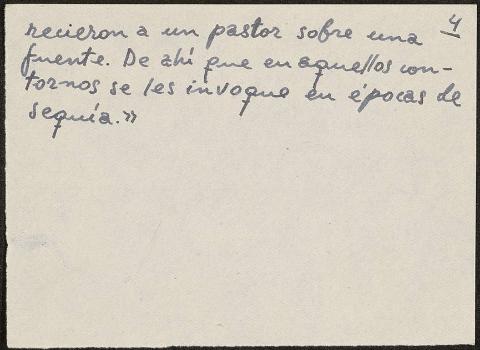 4
recieron a un pastor sobre una
fuente. De ahí que en aquellos con-
tornos se les invoque en épocas de
sequía.»